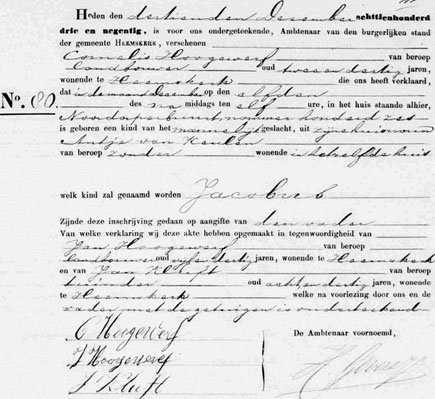 Heden den dertienden December achttienhonderd
drie en negentig, is voor ons ondergeteekende, Ambtenaar van den burgerlijken stand
der gemeente HEEMSKERK, verschenen
Cornelis Hoogewerf van beroep
landbouwer oud twee en dertig jaren,
wonende te Heemskerk die ons heeft verklaard,
dat in de maand December op den elfden
des na middags ten elf ure, in het huis staande alhier,
No. 80. Noorddorperbuurt nummer honderd zes
is geboren een kind van het mannelijk geslacht, uit zijne huisvrouw
Antje van Keulen
van beroep zonder wonende in hetzelfde huis
welk kind zal genaamd worden Jacobus
Zijnde deze inschrijving gedaan op aangifte van den vader
Van welke verklaring wij deze akte hebben opgemaakt in tegenwoordigheid van
Jan Hoogewerf van beroep
landbouwer oud vijf en dertig jaren, wonende te Heemskerk
en van Jan Kluft van beroep
tuinder oud acht en dertig jaren, wonende
te Heemskerk welke na voorlezing door ons en de
vader met de getuigen is onderteekend
De Ambtenaar voornoemd,
C Hoogewerf
J Hoogewerf
J Kluft